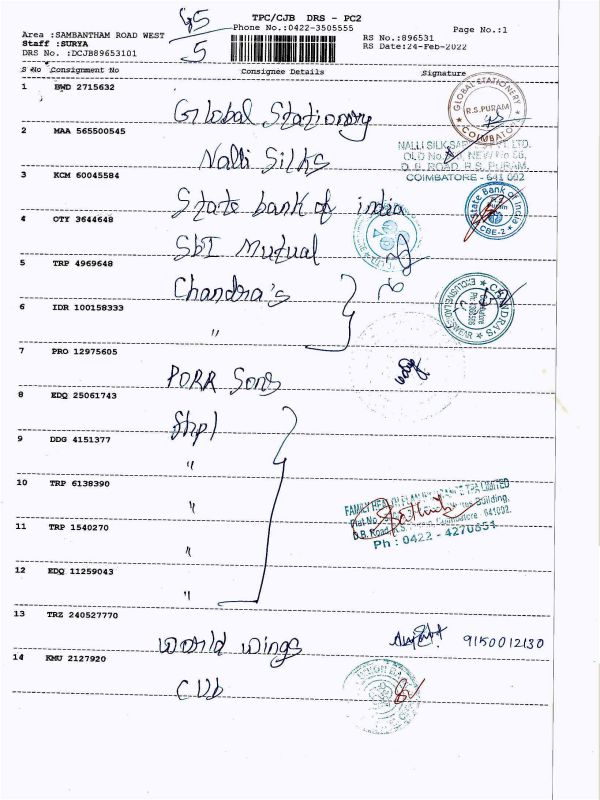 45
5
TPC/CJB DRS - PC2
Phone No.:0422-3505555
Page No.:1
Area :SAMBANTHAM ROAD WEST
Staff :SURYA
DRS No. :DCJB89653101
RS No.:896531
RS Date:24-Feb-2022
S No Consignment No Consignee Details Signature
1 BWD 2715632
Global Stationary
GLOBAL STATIONERY
R.S.PURAM
COIMBATORE
2 MAA 565500545
Nalli Silks
NALLI SILK PVT. LTD.
OLD No. NEW No.
D. B. ROAD, R.S. PURAM,
COIMBATORE - 641 002
3 KCM 60045584
State bank of india
State Bank of India
CBE-2
4 OTY 3644648
SbI Mutual
5 TRP 4969648
Chandra's
CHANDRA'S
6 IDR 100158333
"
7 PRO 12975605
PORR Sons
8 EDQ 25061743
fhpl
9 DDG 4151377
"
10 TRP 6138390
"
FAMILY HEALTH PLAN TPA LIMITED
Building,
D.B. Road, R.S. Puram, Coimbatore - 641002.
Ph : 0422 - 4270651
11 TRP 1540270
"
12 EDQ 11259043
"
13 TRZ 240527770
World wings
9150012130
14 KMU 2127920
CUb